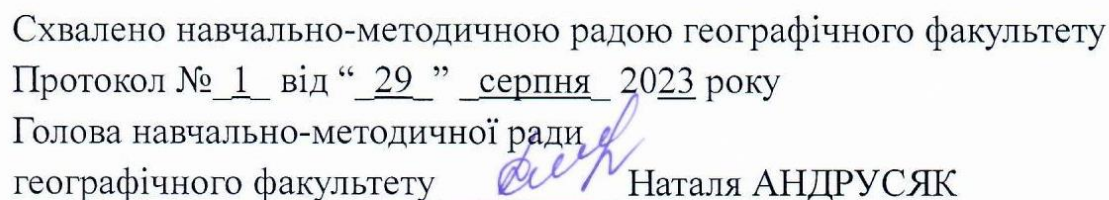 Схвалено навчально-методичною радою географічного факультету
Протокол №_1_ від “_29_” _серпня_ 2023 року
Голова навчально-методичної ради
географічного факультету ________ Наталя АНДРУСЯК